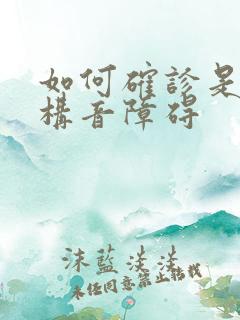 如何確診是
構音障碍
沫藍淡淡
未任同意禁止转载